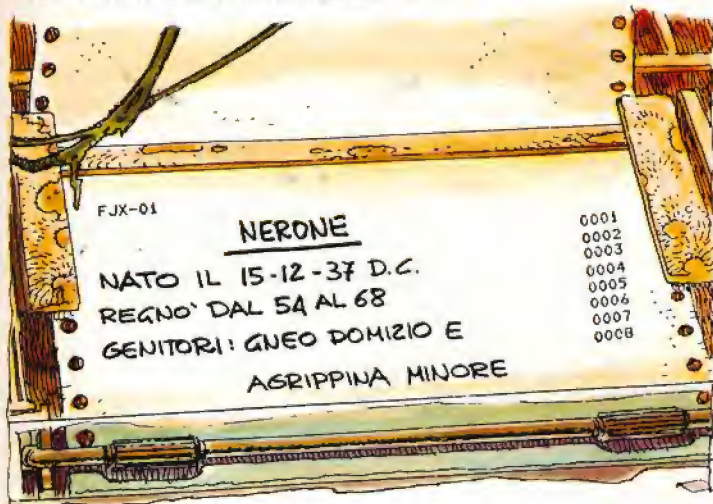 FJX-01
NERONE
NATO IL 15-12-37 D.C.
REGNO' DAL 54 AL 68
GENITORI: GNEO DOMIZIO E
AGRIPPINA MINORE
0001
0002
0003
0004
0005
0006
0007
0008